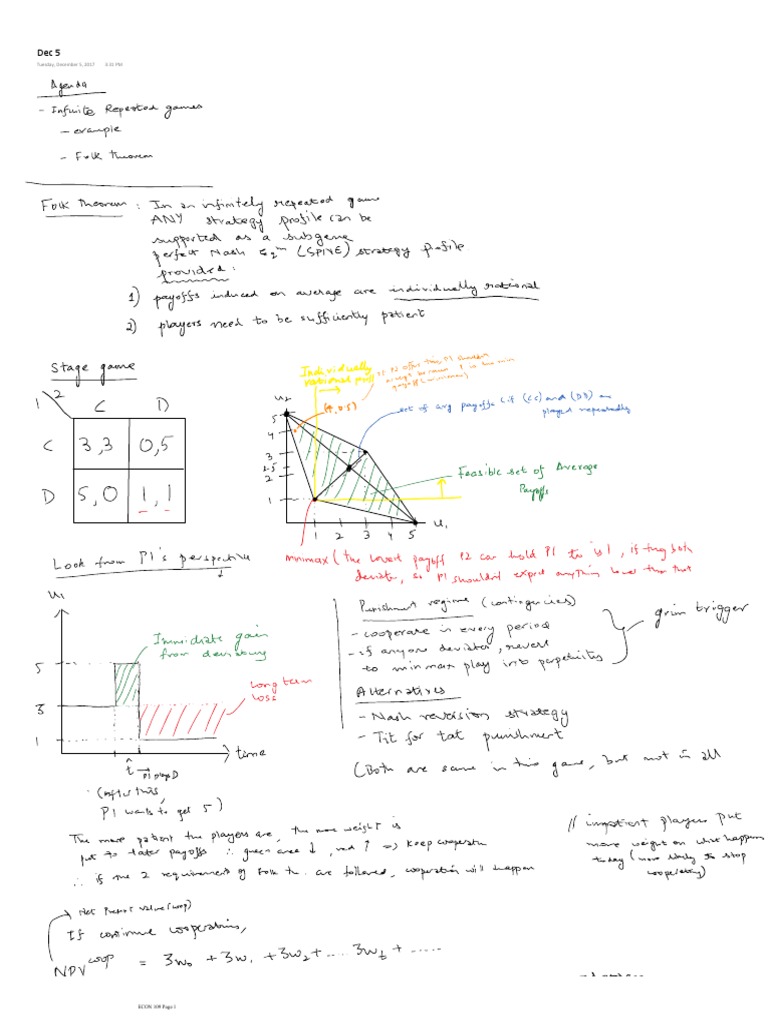 Dec 5
Tuesday, December 5, 2017 3:31 PM
Agenda
- Infinite Repeated games
- example
- Folk Theorem
Folk Theorem : In an infinitely repeated game
ANY strategy profile can be
supported as a subgame
perfect Nash Eqm (SPNE) strategy profile
provided:
1) payoffs induced on average are individually rational
2) players need to be sufficiently patient
Stage game
1 2
C D
C 3,3 0,5
D 5,0 1,1
Individually
rational
u2
5
4
3
2.5
2
1
1 2 3 4 5 u1
set of avg payoffs if (CC) and (DD) are
played repeatedly
Feasible set of Average
Payoffs
minmax (the lowest payoff P2 can hold P1 to is 1, if they both
deviate, so P1 shouldn't expect anything lower than that
Look from P1's perspective
u1
5
3
1
Immediate gain
from deviating
long term
loss
time
t
P1 plays D
(after this,
P1 wants to get 5)
Punishment regime (contingencies)
- cooperate in every period
- if anyone deviates, revert
to minmax play into perpetuity
grim trigger
Alternatives
- Nash reversion strategy
- Tit for tat punishment
(Both are same in this game, but not in all
The more patient the players are, the more weight is
put to later payoffs ∴ green area ↓, red ↑ => keep cooperating
∴ if the 2 requirements of Folk th. are followed, cooperation will happen
// impatient players put
more weight on what happens
today (more likely to stop
cooperating)
Net Present Value (coop)
If continue cooperating,
NPV coop = 3w0 + 3w1 + 3w2 + .... 3wt + .....
ECON Page 1